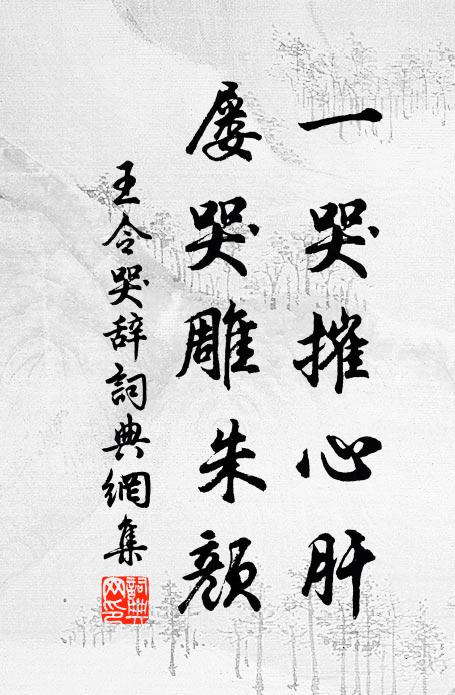 一哭摧心肝
屡哭雕朱颜
王令哭辞詞典網集
詞典网印